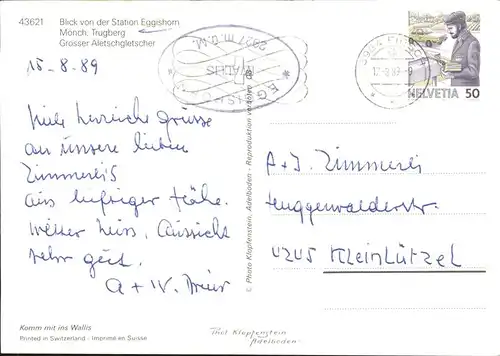 43621
Blick von der Station Eggishorn
Mönch, Trugberg
Grosser Aletschgletscher
15-8-89
Viele herzliche Grüsse
an unsere lieben
Zimmerli's
aus luftiger Höhe.
Wetter heiss, Aussicht
sehr gut.
A + W.
Komm mit ins Wallis
Printed in Switzerland - Imprimé en Suisse
© Photo Klopfenstein, Adelboden - Reproduktion verboten
Phot Klopfenstein
Adelboden
EGGISHORN
WALLIS
2927 m.ü.M.
3984 FIESCH
HELVETIA 50
A + J. Zimmerli
4245 Kleinlützel